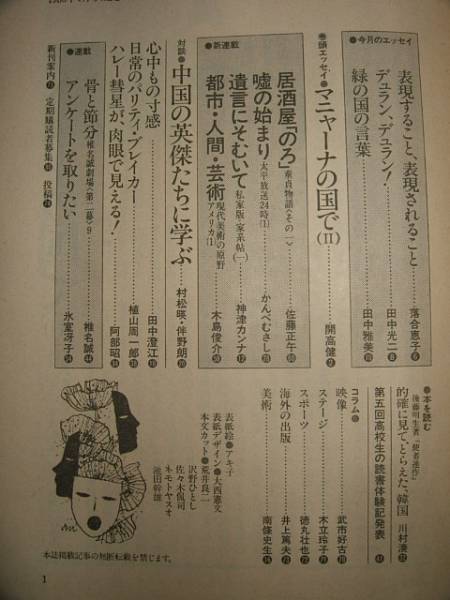 ●今月のエッセイ
表現すること、表現されること……落合恵子 6
デュラン、デュラン!……田中光二 8
緑の国の言葉……田中雅美
巻頭エッセイ●マニャーナの国で(II)……開高健 2
●新連載
居酒屋「のろ」童貞物語〈その一〉……佐藤正午
嘘の始まり 太平放送24時(1)……かんべむさし
遺言にそむいて 私家版・家系帖(一)……神津カンナ 12
都市・人間・芸術 現代美術の原野 アメリカ(1)……木島俊介
対談●中国の英傑たちに学ぶ……村松暎・伴野朗
心中もの寸感……田中澄江
日常のパリティ・ブレイカー……植山周一郎
ハレー彗星が、肉眼で見える!……阿部昭
●連載
骨と節分 椎名誠劇場〈第二幕〉9……椎名誠 44
アンケートを取りたい……氷室冴子
新刊案内 定期購読者募集 投稿
●本を読む
後藤明生著『使者連作』
的確に見て、とらえた、韓国 川村湊
第五回高校生の読書体験記発表
コラム
映像……武市好古
ステージ……木立玲子
スポーツ……徳丸壮也
海外の出版……井上篤夫
美術……南條史生
表紙絵●アキ子
表紙デザイン●大西憲文
本文カット●荒井良二
沢野ひとし
佐々木侃司
ネモトヤスオ
池田幹雄
本誌掲載記事の無断転載を禁じます。
1